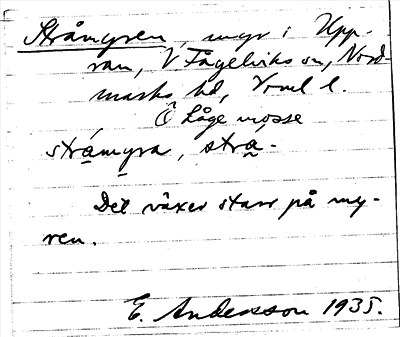 Stråmyren, myr i Upp-
ran, V Fågelviks sn, Nord-
marks hd, Vrml l.
Ö Låge mosse
stråmyra, strå-.
Det växer starr på my-
ren.
E. Andersson 1935.